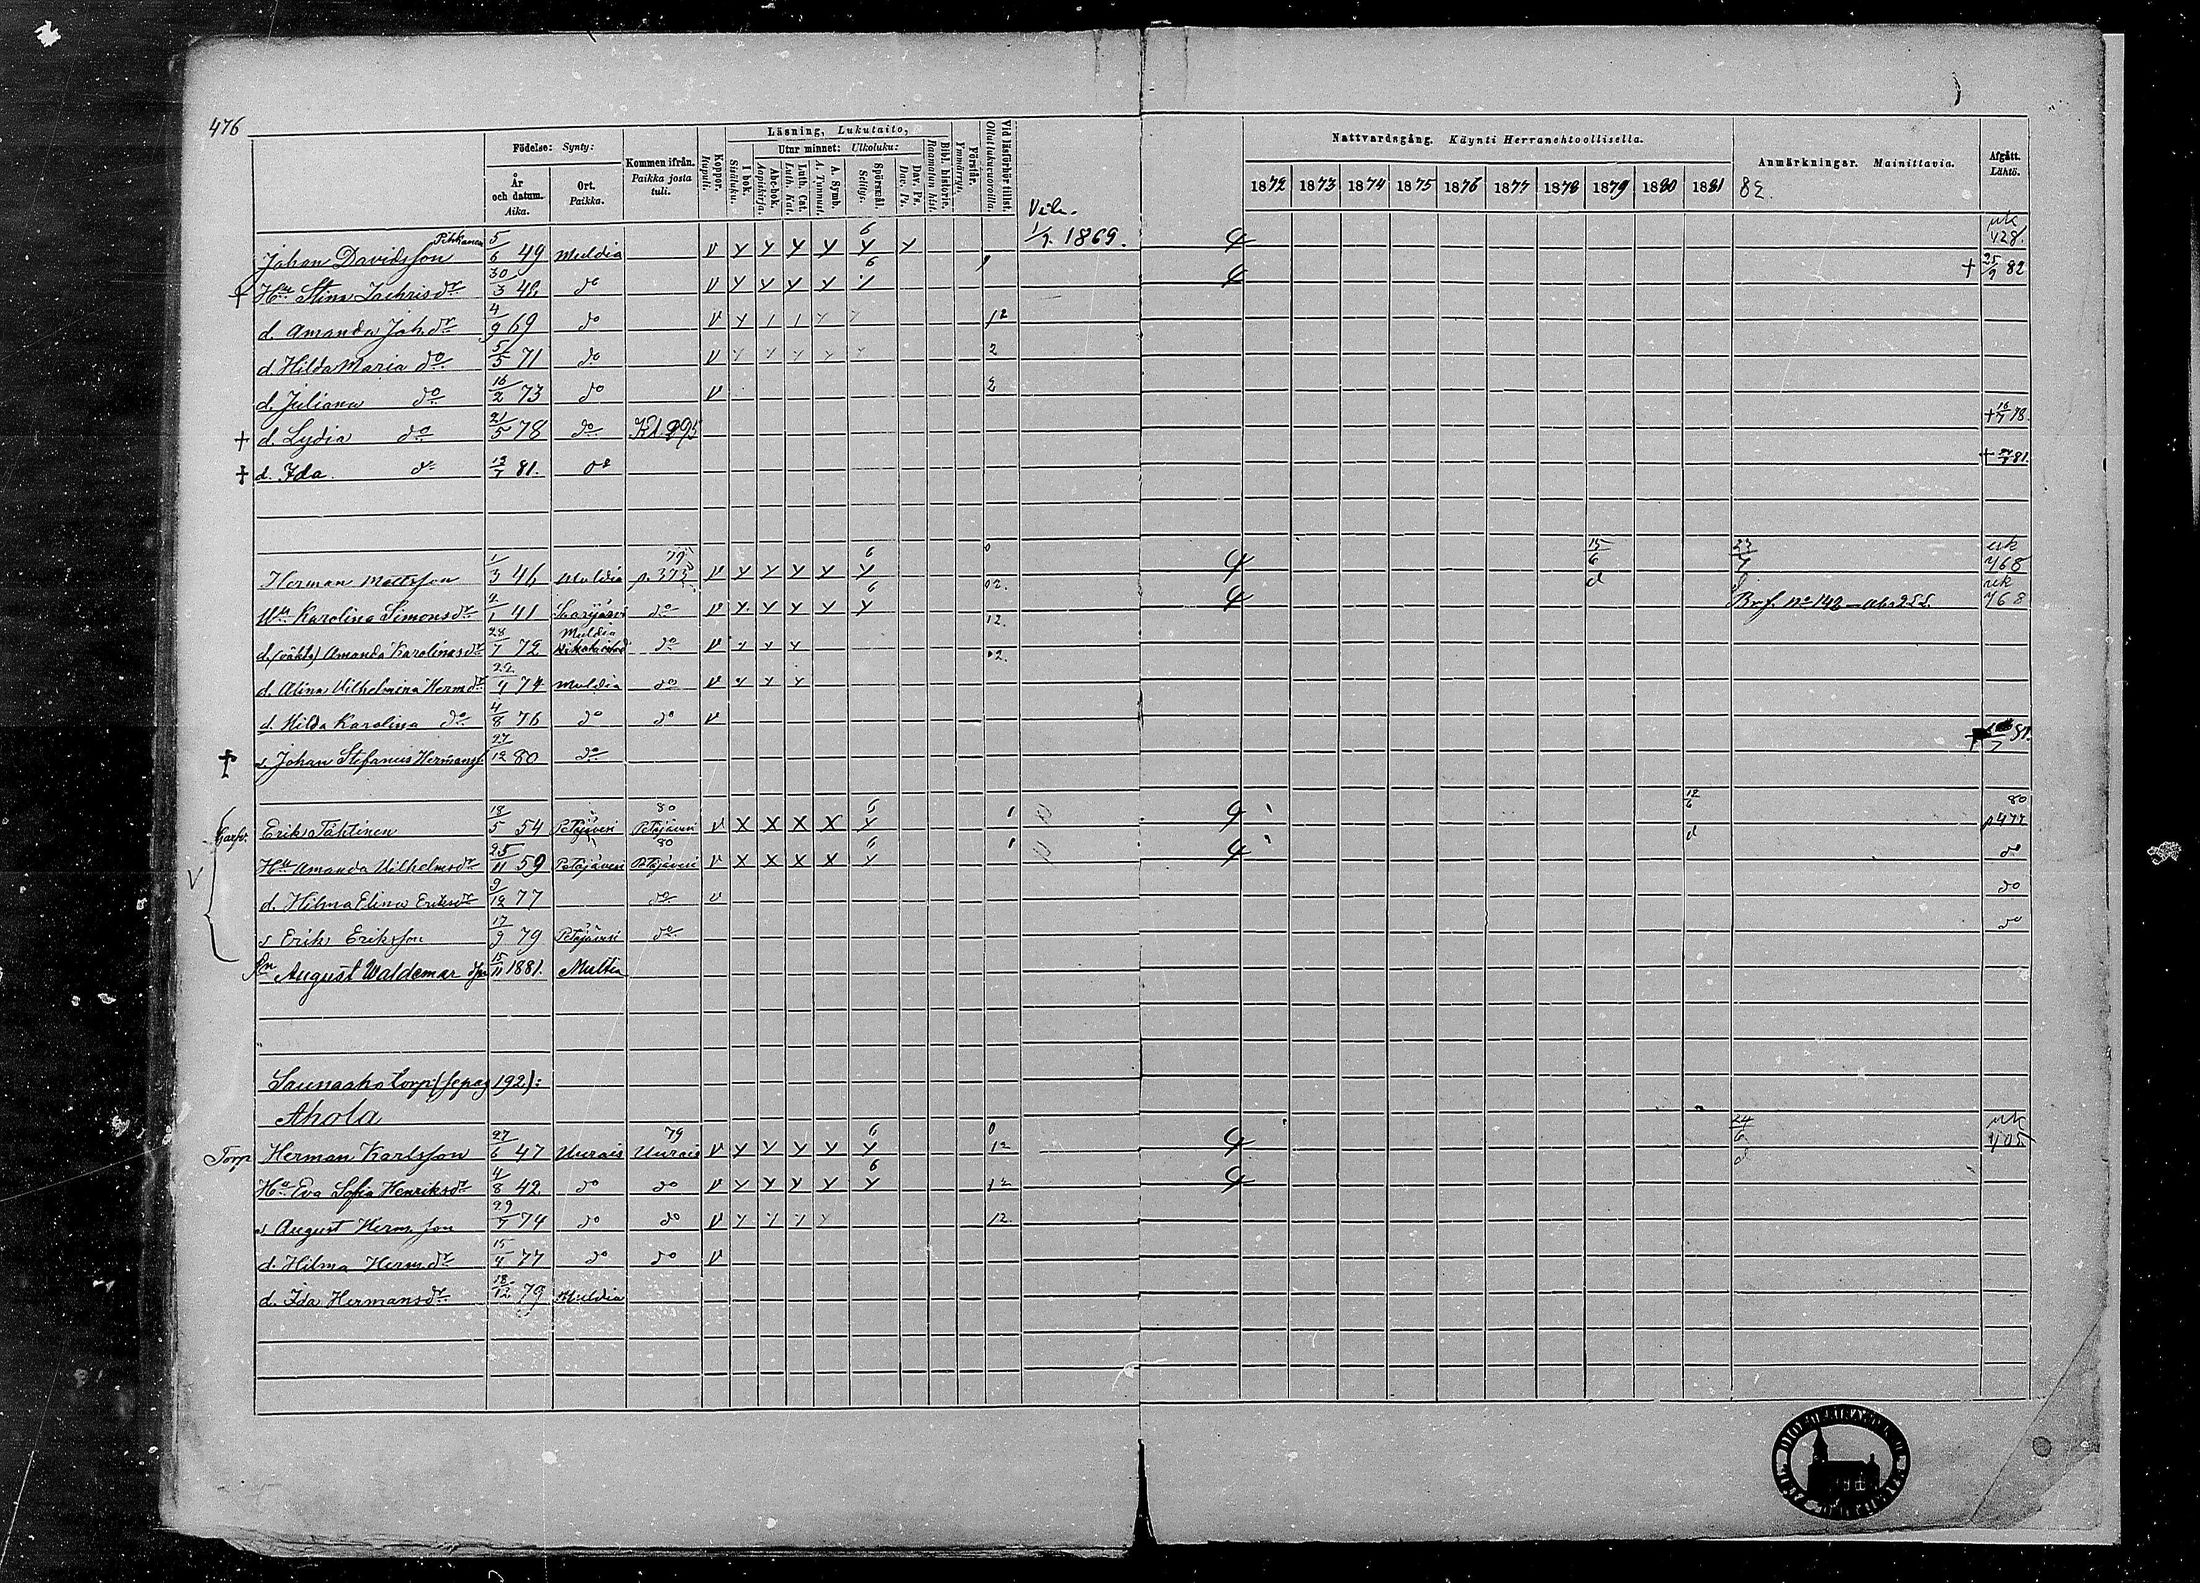 476
Födelse: Synty:
Kommen ifrån. Paikka josta tuli.
Koppor. Rupuli.
Läsning, Lukutaito,
Utur minnet: Ulkoluku:
I bok. Sisäluku.
Abc-bok. Aapiskirja.
Luth. Cat. Luth. Kat.
A. Symb. A. Tunnust.
Spörsmål. Selitys.
Dav. Ps. Dav. Ps.
Bibl. historie. Raamatun hist.
Förstår. Ymmärrys.
Vid läsförhör tillst. Ollut lukuvuoroilla.
Nattvardsgång. Käynti Herranehtoollisella.
Anmärkningar. Mainittavia.
Afgått. Lähtö.
År och datum. Aika.
Ort. Paikka.
1872 1873 1874 1875 1876 1877 1878 1879 1880 1881 82.
Johan Davidsson Pihkanen 5/6 49 Muldia V Y Y Y Y 6 Y Y 1/7 1869. uk 428.
† Hu Stina Zachrisdr 30/3 48 do V Y Y Y Y 6 † 25/9 82
d. Amanda Joh.dr 4/9 69 do V 12
d. Hilda Maria do 5/5 71 do V 2
d. Juliana do 16/2 73 do V 2
† d. Lydia do 21/5 78 do † 16/7 78.
† d. Ida do 12/7 81. do † 81.
Herman Mattsson 1/3 46 Muldia 79 p. 373 V Y Y Y Y 6 Y 0 15/6 d 23/7 uk 768
Hu Karolina Simonsdr 41 Saarijärvi do V Y Y Y Y 6 Y 02. Brf. No 142 uk 768
d. (oäkta) Amanda Karolinasdr 28/7 72 Muldia do V Y Y Y 12.
d. Alina Vilhelmina Herm.dr 74 Muldia do V Y Y Y 02.
d. Hilda Karolina do 4/8 76 do do V
† s. Johan Stefanus Hermanss. 27/12 80 do † 81.
Erik Tähtinen 18/5 54 Petäjävesi 80 Petäjävesi V X X X X 6 Y 1 12/6 d 80 p 477
V Hu Amanda Vilhelmsdr 25/11 59 Petäjävesi 80 Petäjävesi V X X X X 6 Y 1 do
d. Hilma Elina Eriksdr 9/12 77 do V do
s. Erik Eriksson 17/9 79 Petäjävesi do do
Sn August Waldemar 15/11 1881. Multia
Saunaaho torp (se pag 192):
Ahola
Torp Herman Karlsson 27/6 47 Uurais 79 Uurais V Y Y Y Y 6 Y 0 12 24/6 d uk
Hu Eva Sofia Henriksdr 4/8 42 do do V Y Y Y Y 6 Y 12
s. August Herm.son 29/7 74 do do V Y Y Y Y 12.
d. Hilma Herm.dr 15/4 77 do do V
d. Ida Hermansdr 18/12 79 Muldia